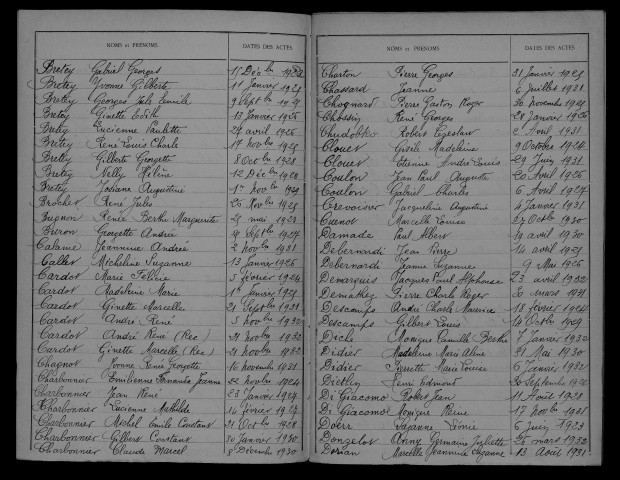 NOMS et PRÉNOMS DATES DES ACTES
Bretey Gabriel Georges 15 Déc bre
Bretey Yvonne Gilberte 11 Janvier
Bretey Georges Jules Emile 9 Septbre
Bretey Ginette Edith 13 Janvier 1926
Bretey Lucienne Paulette 24 avril 1926
Bretey René Louis Charle 17 Novbre
Bretey Gilberte Georgette 8 Octbre 1928
Bretey Nelly Hélène 12 Décbre 1928
Bretey Josiane Augustine 1er Novbre 1929
Brochet René Jules 25 Novbre
Bugnon Renée Berthe Marguerite 25 mai
Buron Georgette Andrée Septbre 1927
Calame Jeannine Andrée 2 Novbre 1931
Caller Micheline Suzanne 13 Janvier 1926
Cardot Marie 5 Février 1924
Cardot Madeleine Marie Janvier
Cardot Ginette Marcelle 21 Septbre 1931
Cardot André René 5 Novbre 1932
Cardot André René (Rec) 21 Novbre 1932
Cardot Ginette Marcelle (Rec) 21 Novbre 1932
Chagnot Yvonne Renée Georgette 10 Novembre 1931
Charbonnier Emilienne Fernande Jeanne 22 Novbre 1924
Charbonnier Jean René 23 Janvier 1927
Charbonnier Lucienne Mathilde 14 Février 1927
Charbonnier Michel Emile Constant 21 Octbre 1928
Charbonnier Gilbert Constant 30 Janvier 1930
Charbonnier Claude Marcel 8 Décembre 1930
NOMS et PRÉNOMS DATES DES ACTES
Charton Pierre Georges 31 Janvier
Chassard Jeanne 6 Juillet 1921
Chognard Pierre Gaston Roger 30 Novembre
Chossin René Georges 28 Janvier 1926
Chudobko Robert Ceslaw 2 Avril 1931
Clouet Gisèle Madeleine 9 Octobre 1924
Clouet Etienne André Louis 29 Juin 1931
Coulon Jean Paul Auguste 20 Avril 1926
Coulon Gabriel Charles 6 Avril 1927
Crevoisier Jacqueline Augustine 4 Janvier 1931
Cuenot Marcelle Louise 27 Octbre 1930
Damade Paul Albert 14 avril 1930
Debernardi Jean Pierre 14 avril
Debernardi Jeanne Suzanne 9 Mai 1926
Demarquis Jacques Paul Alphonse 23 avril 1932
Demathey Pierre Charle Roger 30 mars 1931
Descamps André Charle Maurice 18 février 1924
Descamps Gilbert Louis 14 Octbre 1929
Dicle Monique Camille Berthe 7 Janvier 1932
Didier Madeleine Marie Aline 21 Mai 1930
Didier Pierrette Marie Louise 6 Janvier 1932
Dietlin Henri Edmond 20 Septembre
Di Giacomo Robert Jean 11 Août 1928
Di Giacomo Monique Reine 17 Novbre 1931
Doerr Suzanne Léonie 6 Juin 1923
Donzelot Anny Germaine Juliette 26 mars 1932
Dorian Marcelle Jeannine Suzanne 13 Août 1931